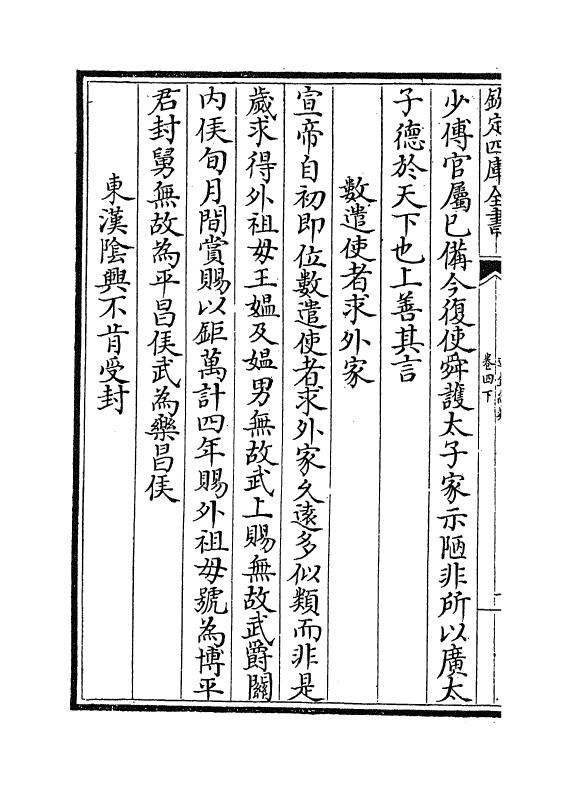 欽定四庫全書
卷四下
少傅官屬已備今復使舜護太子家示陋非所以廣太
子德於天下也上善其言
數遣使者求外家
宣帝自初即位數遣使者求外家久遠多似類而非是
歲求得外祖母王媪及媪男無故武上賜無故武爵關
内侯旬月間賞賜以鉅萬計四年賜外祖母號為博平
君封舅無故為平昌侯武為樂昌侯
東漢陰興不肯受封